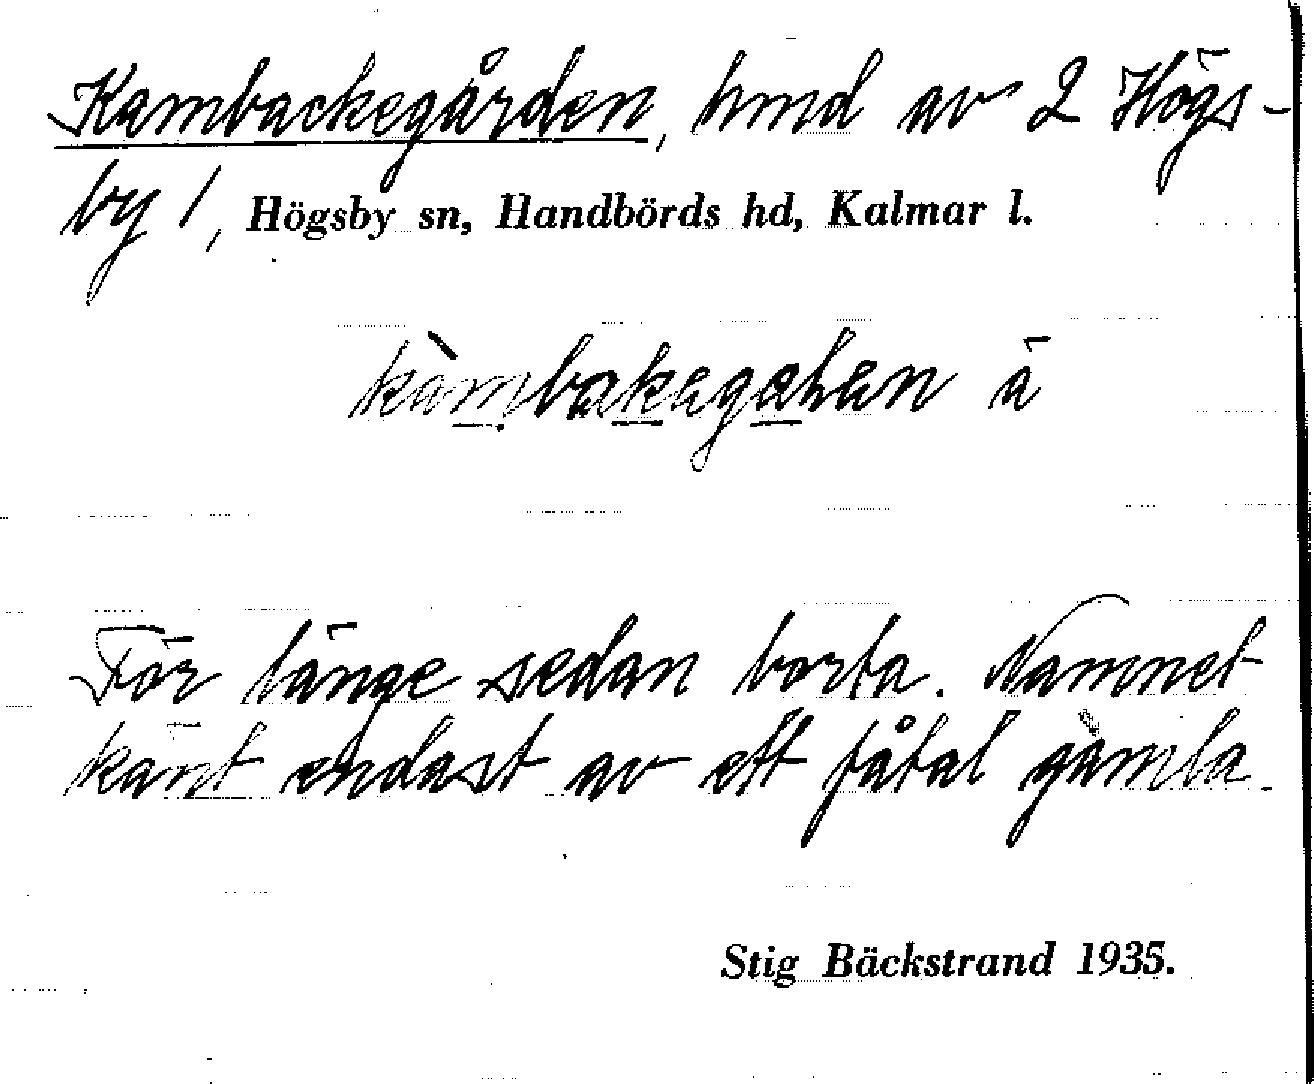 Kambackegården, hmd av 2 Högs-
by 1, Högsby sn, Handbörds hd, Kalmar l.
kàmbakegahen ä
För länge sedan borta. Namnet
känt endast av ett fåtal gamla.
Stig Bäckstrand 1935.